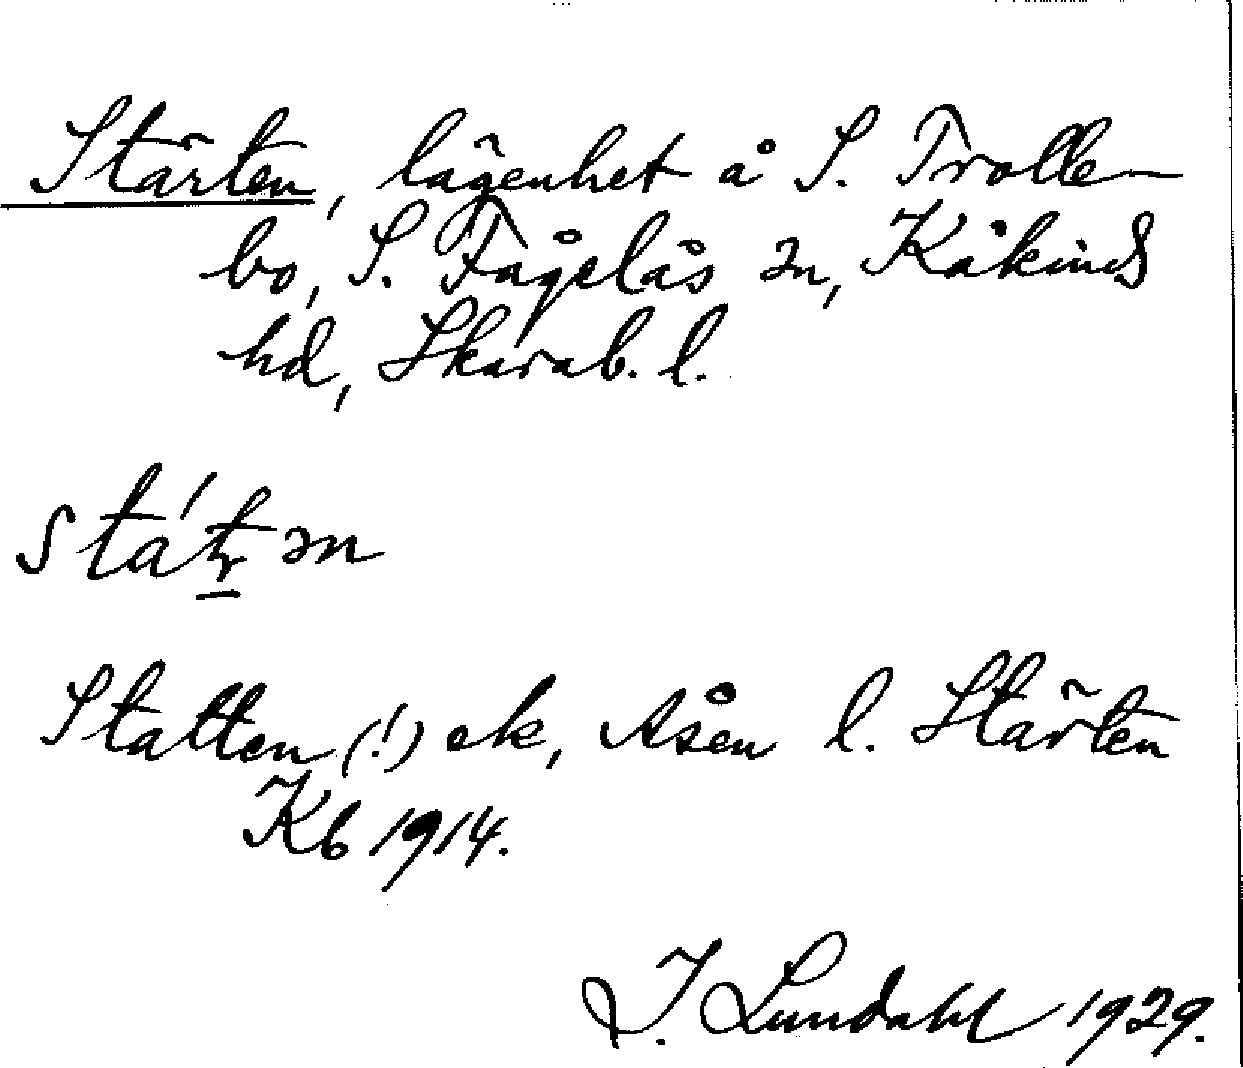 Stärten, lägenhet å S. Trolle-
bo, S. Fågelås sn, Kåkinds
hd, Skarab. l.
Statten (!) ek, Åsen l. Stärten
Kb 1914.
I. Lundahl 1929.